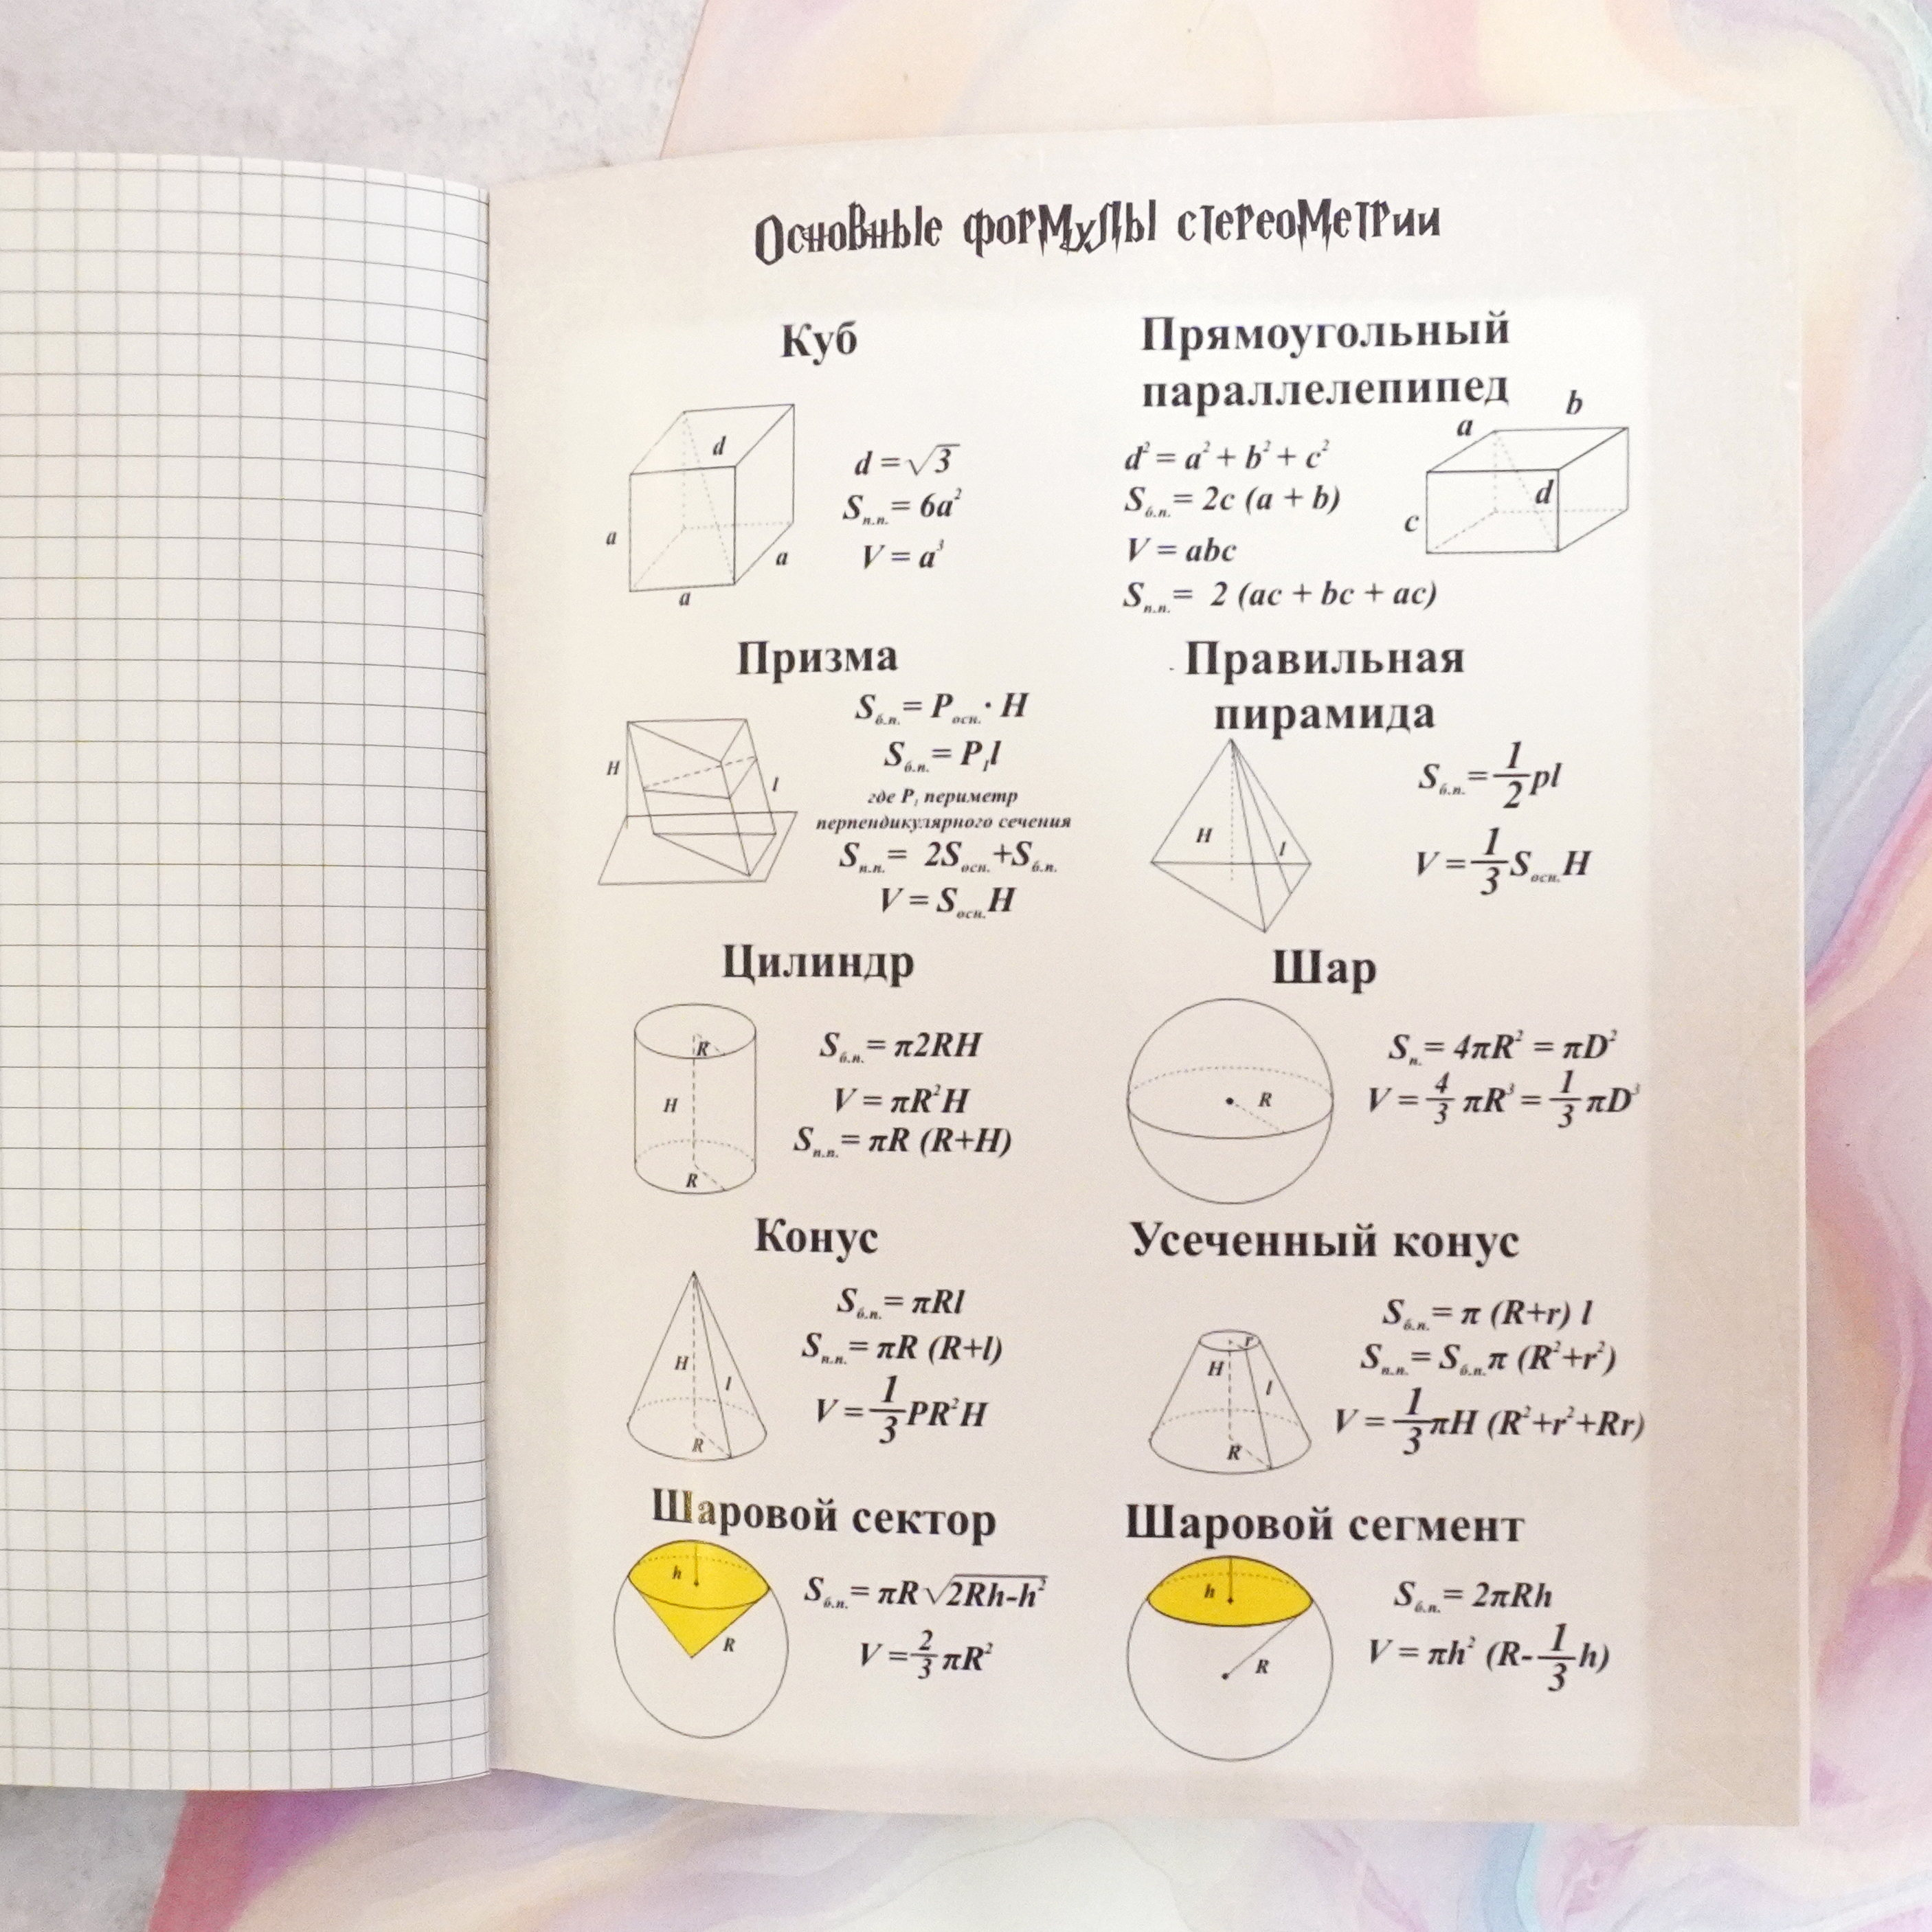 Основные формулы стереометрии
Куб
d
a
a
a
d = √3
Sп.п. = 6a²
V = a³
Прямоугольный
параллелепипед
a
b
c
d
d² = a² + b² + c²
Sб.п. = 2c (a + b)
V = abc
Sп.п. = 2 (ac + bc + ac)
Призма
H
l
Sб.п. = Pосн. · H
Sб.п. = P₁l
где P₁ периметр
перпендикулярного сечения
Sп.п. = 2Sосн. + Sб.п.
V = Sосн. H
Правильная
пирамида
H
l
Sб.п. = 1/2 pl
V = 1/3 Sосн. H
Цилиндр
R
H
R
Sб.п. = π2RH
V = πR²H
Sп.п. = πR (R+H)
Шар
R
Sп. = 4πR² = πD²
V = 4/3 πR³ = 1/3 πD³
Конус
H
l
R
Sб.п. = πRl
Sп.п. = πR (R+l)
V = 1/3 PR²H
Усеченный конус
r
H
l
R
Sб.п. = π (R+r) l
Sп.п. = Sб.п. π (R²+r²)
V = 1/3 πH (R²+r²+Rr)
Шаровой сектор
h
R
Sб.п. = πR √2Rh-h²
V = 2/3 πR²
Шаровой сегмент
h
R
Sб.п. = 2πRh
V = πh² (R-1/3 h)